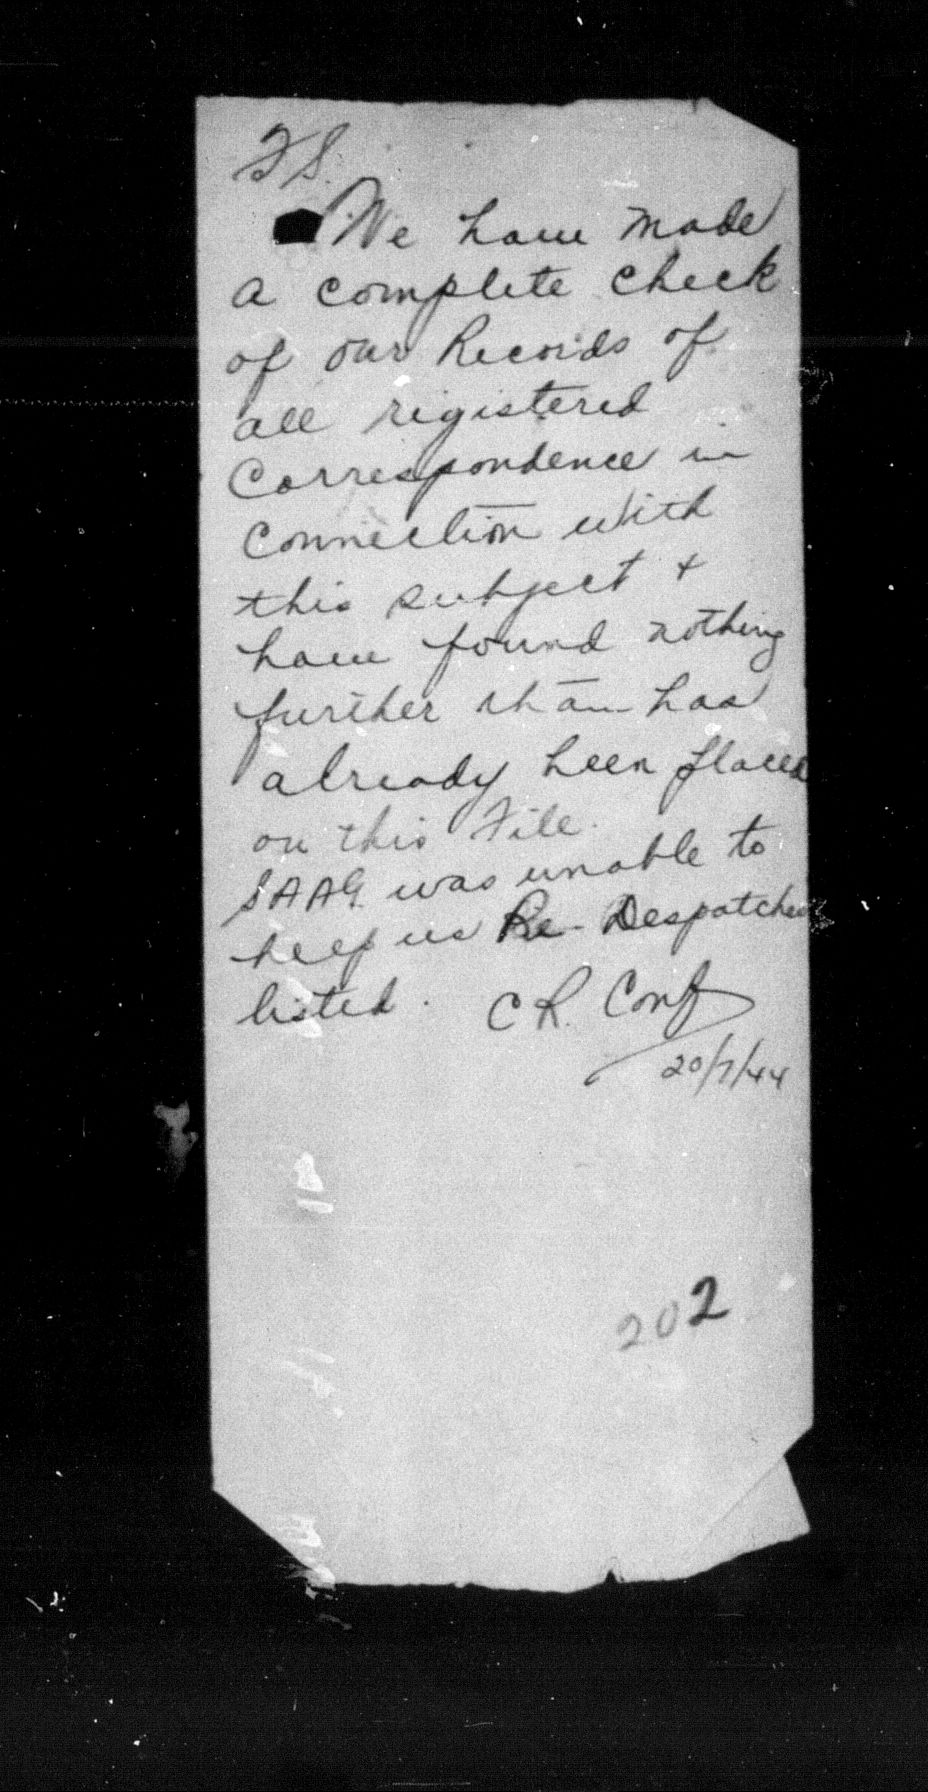 FS.
We have made
a complete check
of our Records of
all registered
Correspondence in
Connection with
this subject +
have found nothing
further than has
already been placed
on this File.
SAAG. was unable to
help us Re- Despatches
listed. CR. Conf
20/7/44
202